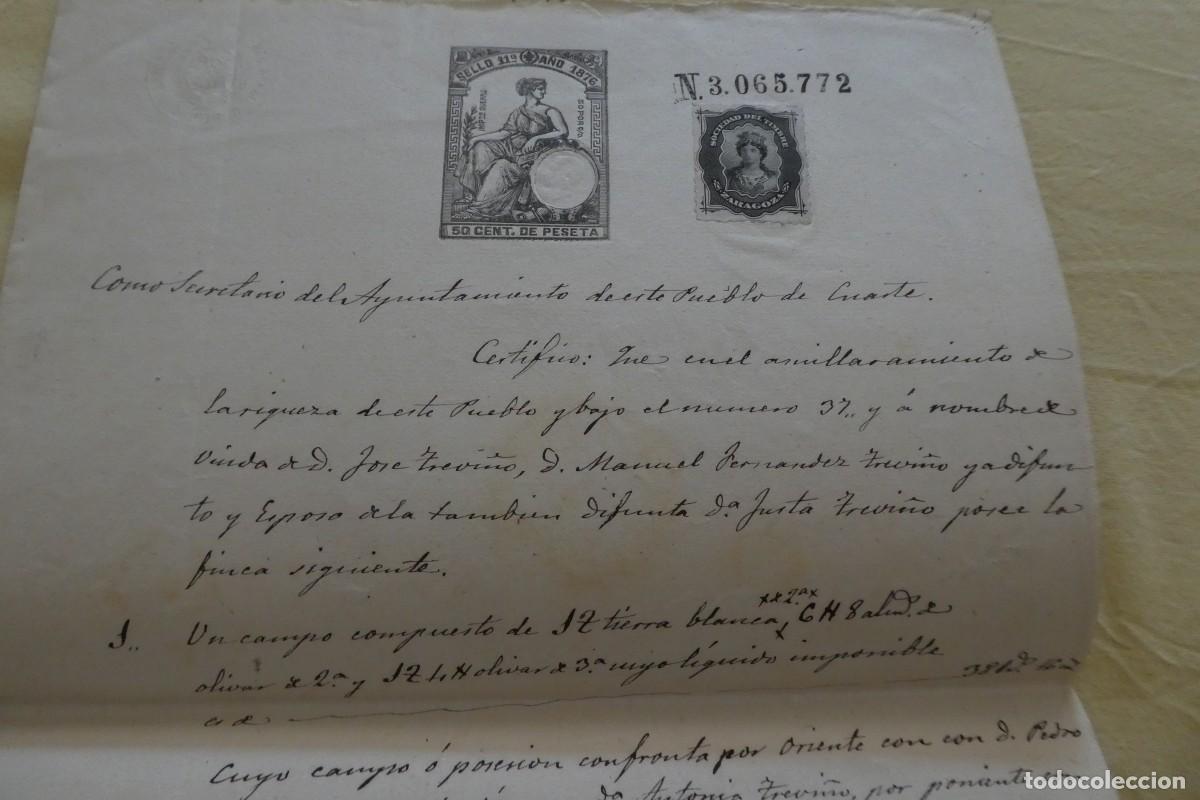 SELLO 11º AÑO 1876
50 POR C/o
50 CENT. DE PESETA
N. 3.065.772
SOCIEDAD DEL TIMBRE
ZARAGOZA
Como Secretario del Ayuntamiento de este Pueblo de Cuarte.
Certifico: Que en el amillaramiento de
la riqueza de este Pueblo y bajo el numero 37,, y á nombre de
Viuda de D. Jose Treviño, D. Manuel Fernandez Treviño ya difun
to y Esposo de la tambien difunta Dª Justa Treviño posee la
finca siguiente.
1.. Un campo compuesto de 1Z tierra blanca, x de 2ª x 6 H 8 almd. de
olivar de 2ª y 1Z 4 H olivar de 3ª cuyo líquido imponible
es de
Cuyo campo ó posesion confronta por Oriente con con D. Pedro
Dª Antonia Treviño, por poniente
todocoleccion